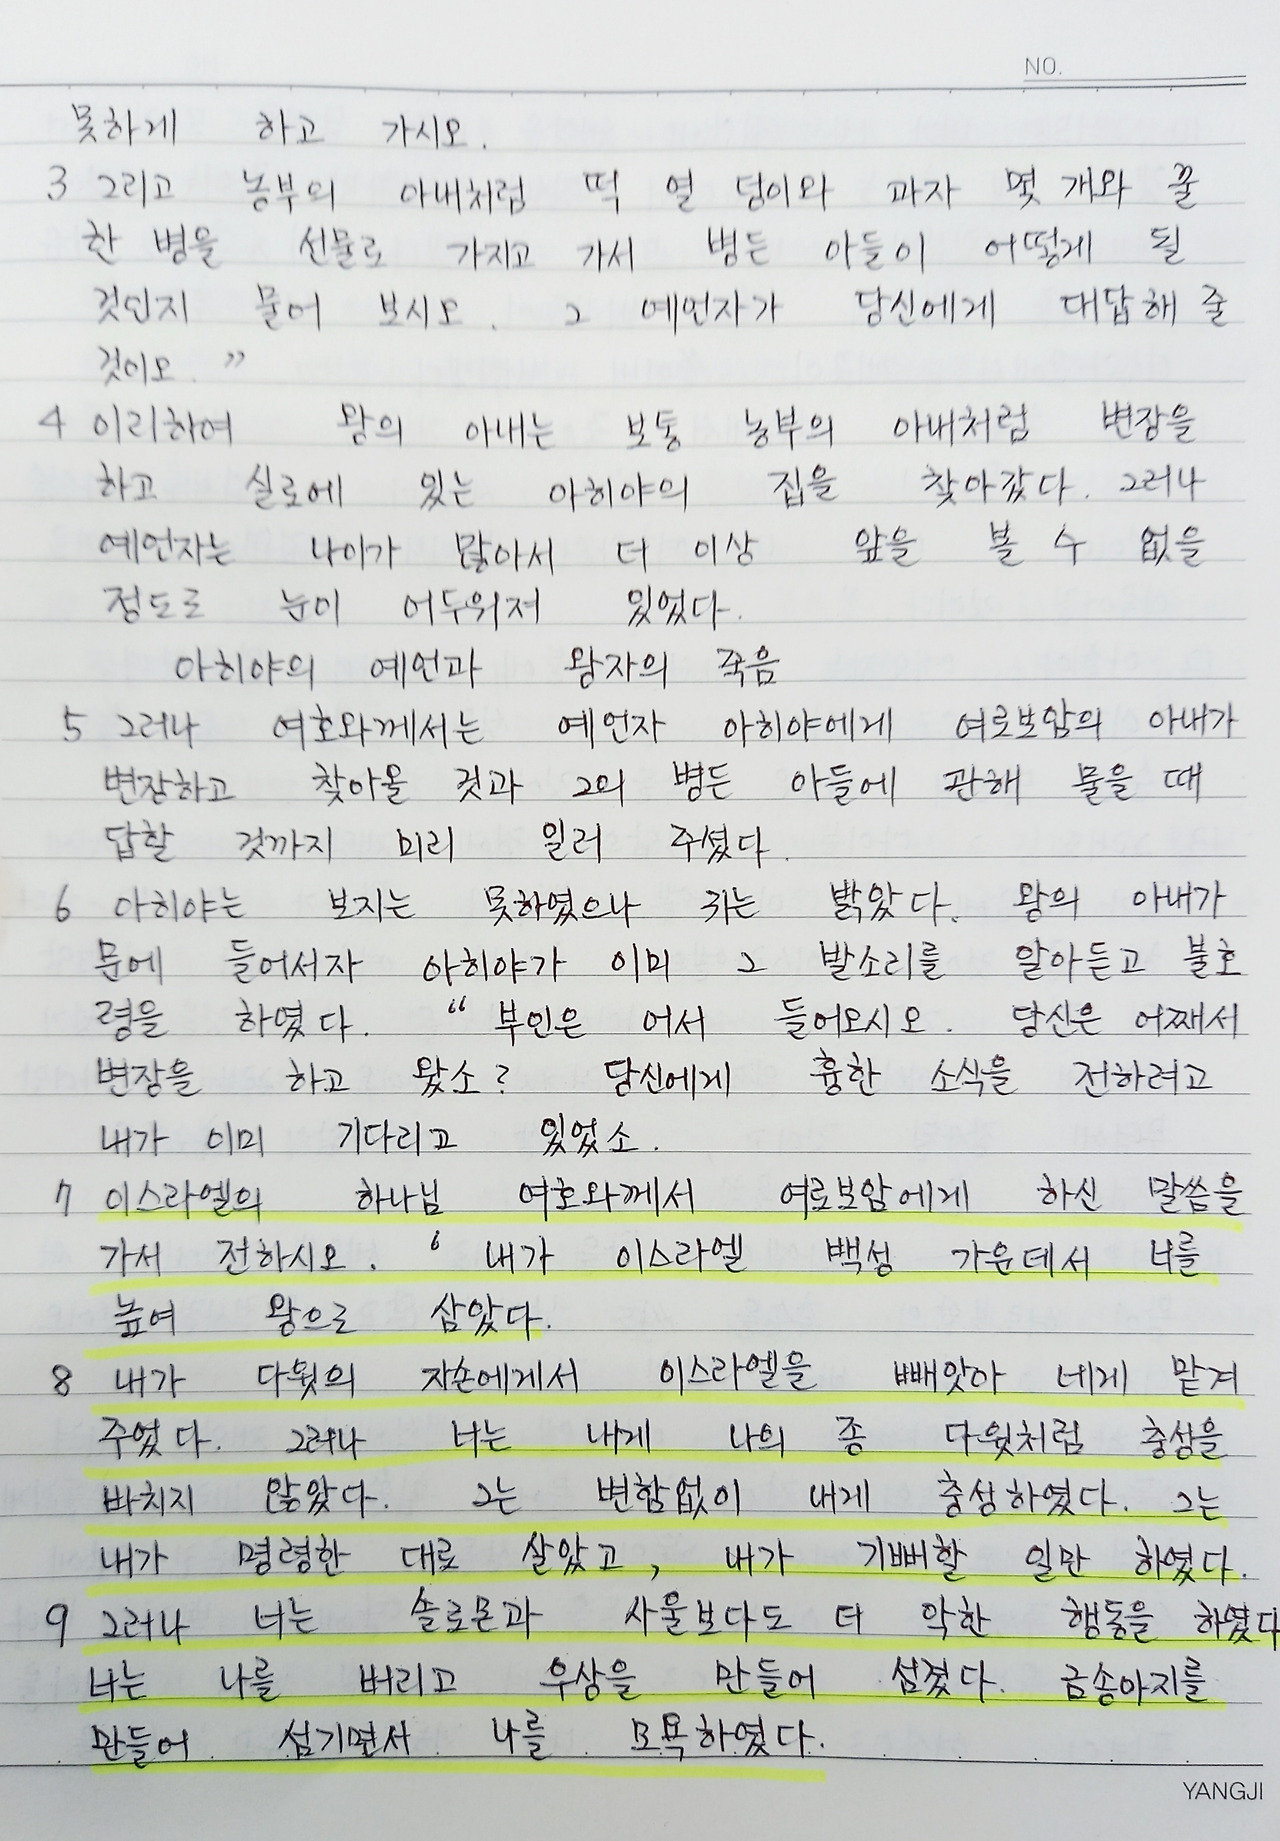 NO.
못하게 하고 가시오.
3 그리고 농부의 아내처럼 떡 열 덩이와 과자 몇 개와 꿀
한 병을 선물로 가지고 가서 병든 아들이 어떻게 될
것인지 물어 보시오. 그 예언자가 당신에게 대답해 줄
것이오."
4 이리하여 왕의 아내는 보통 농부의 아내처럼 변장을
하고 실로에 있는 아히야의 집을 찾아갔다. 그러나
예언자는 나이가 많아서 더 이상 앞을 볼 수 없을
정도로 눈이 어두워져 있었다.
아히야의 예언과 왕자의 죽음
5 그러나 여호와께서는 예언자 아히야에게 여로보암의 아내가
변장하고 찾아올 것과 그의 병든 아들에 관해 물을 때
답할 것까지 미리 일러 주셨다.
6 아히야는 보지는 못하였으나 귀는 밝았다. 왕의 아내가
문에 들어서자 아히야가 이미 그 발소리를 알아듣고 불호
령을 하였다. "부인은 어서 들어오시오. 당신은 어째서
변장을 하고 왔소? 당신에게 흉한 소식을 전하려고
내가 이미 기다리고 있었소.
7 이스라엘의 하나님 여호와께서 여로보암에게 하신 말씀을
가서 전하시오. '내가 이스라엘 백성 가운데서 너를
높여 왕으로 삼았다.
8 내가 다윗의 자손에게서 이스라엘을 빼앗아 네게 맡겨
주었다. 그러나 너는 내게 나의 종 다윗처럼 충성을
바치지 않았다. 그는 변함없이 내게 충성하였다. 그는
내가 명령한 대로 살았고, 내가 기뻐할 일만 하였다.
9 그러나 너는 솔로몬과 사울보다도 더 악한 행동을 하였다
너는 나를 버리고 우상을 만들어 섬겼다. 금송아지를
만들어 섬기면서 나를 모욕하였다.
YANGJI